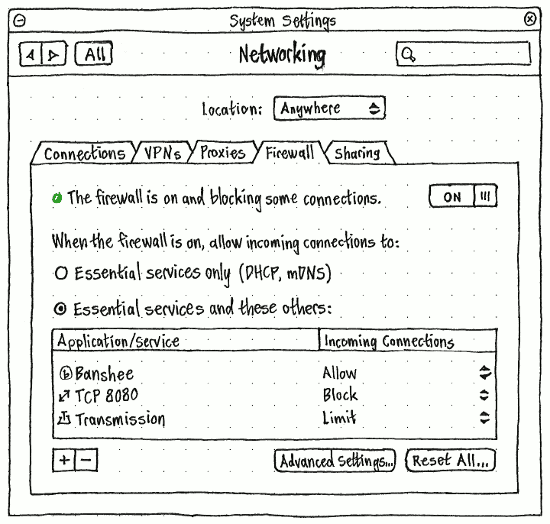 System Settings
All
Networking
Location: Anywhere
Connections VPNs Proxies Firewall Sharing
The firewall is on and blocking some connections. ON
When the firewall is on, allow incoming connections to:
Essential services only (DHCP, mDNS)
Essential services and these others:
Application/service Incoming Connections
Banshee Allow
TCP 8080 Block
Transmission Limit
+ −
Advanced Settings... Reset All...